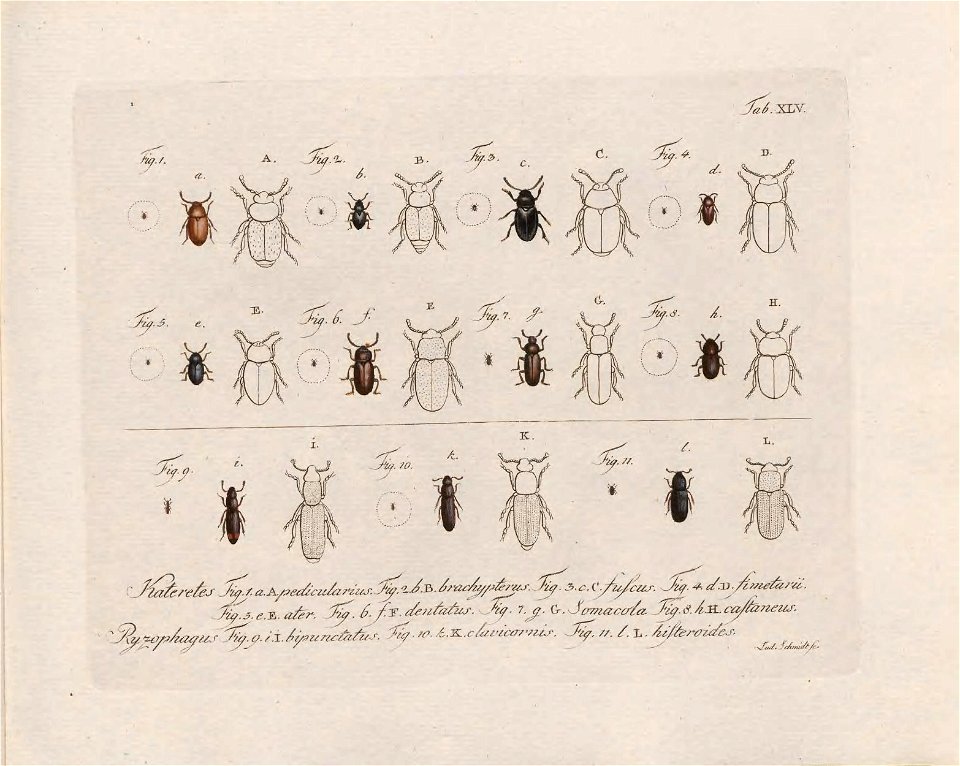 Tab. XLV.
Fig. 1. A. Fig. 2. B. Fig. 3. C. Fig. 4. D.
a. b. c. d.
Fig. 5. e. E. Fig. 6. f. F Fig. 7. g. G. Fig. 8. h. H.
Fig. 9. i. I. Fig. 10. k. K. Fig. 11. l. L.
Kateretes Fig. 1. a. A pedicularius. Fig. 2. b. B. brachypterus. Fig. 3. c. C. fuſcus. Fig. 4. d. D. fimetarii.
Fig. 5. e. E. ater. Fig. 6. f. F. dentatus. Fig. 7. g. G. Somacola Fig. 8. h. H. caſtaneus.
Ryzophagus Fig. 9. i. I. bipunctatus. Fig. 10. k. K. clavicornis. Fig. 11. l. L. hiſteroides.
Lud. Schmidt ſc.